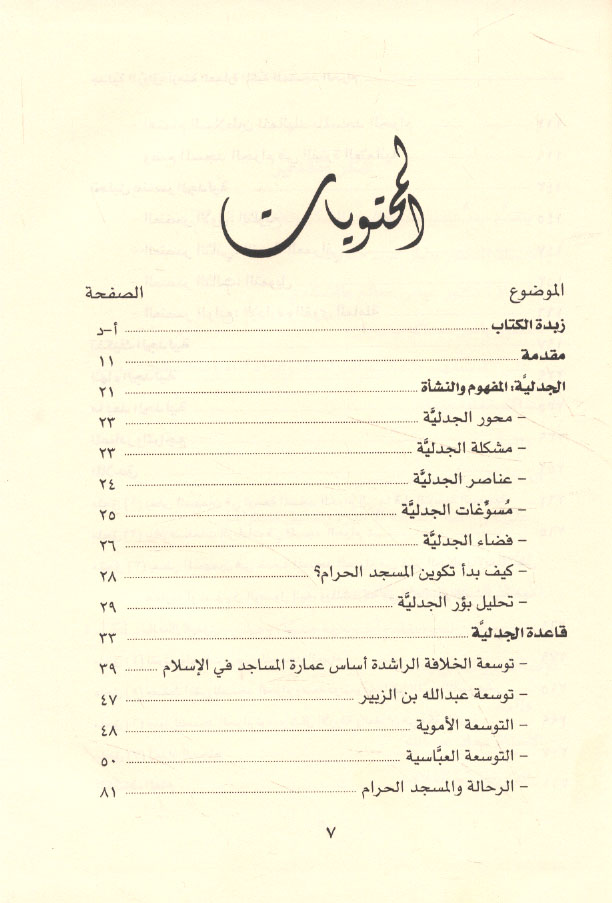 المحتويات
الموضوع الصفحة
زبدة الكتاب ........ أ-د
مقدمة ........ ١١
الجدليَّة: المفهوم والنشأة ........ ٢١
- محور الجدليَّة ........ ٢٣
- مشكلة الجدليَّة ........ ٢٣
- عناصر الجدليَّة ........ ٢٤
- مُسوِّغات الجدليَّة ........ ٢٥
- فضاء الجدليَّة ........ ٢٦
- كيف بدأ تكوين المسجد الحرام؟ ........ ٢٨
- تحليل بؤر الجدليَّة ........ ٢٩
قاعدة الجدليَّة ........ ٣٣
- توسعة الخلافة الراشدة أساس عمارة المساجد في الإسلام ........ ٣٩
- توسعة عبدالله بن الزبير ........ ٤٧
- التوسعة الأموية ........ ٤٨
- التوسعة العبَّاسية ........ ٥٠
- الرحالة والمسجد الحرام ........ ٨١
٧